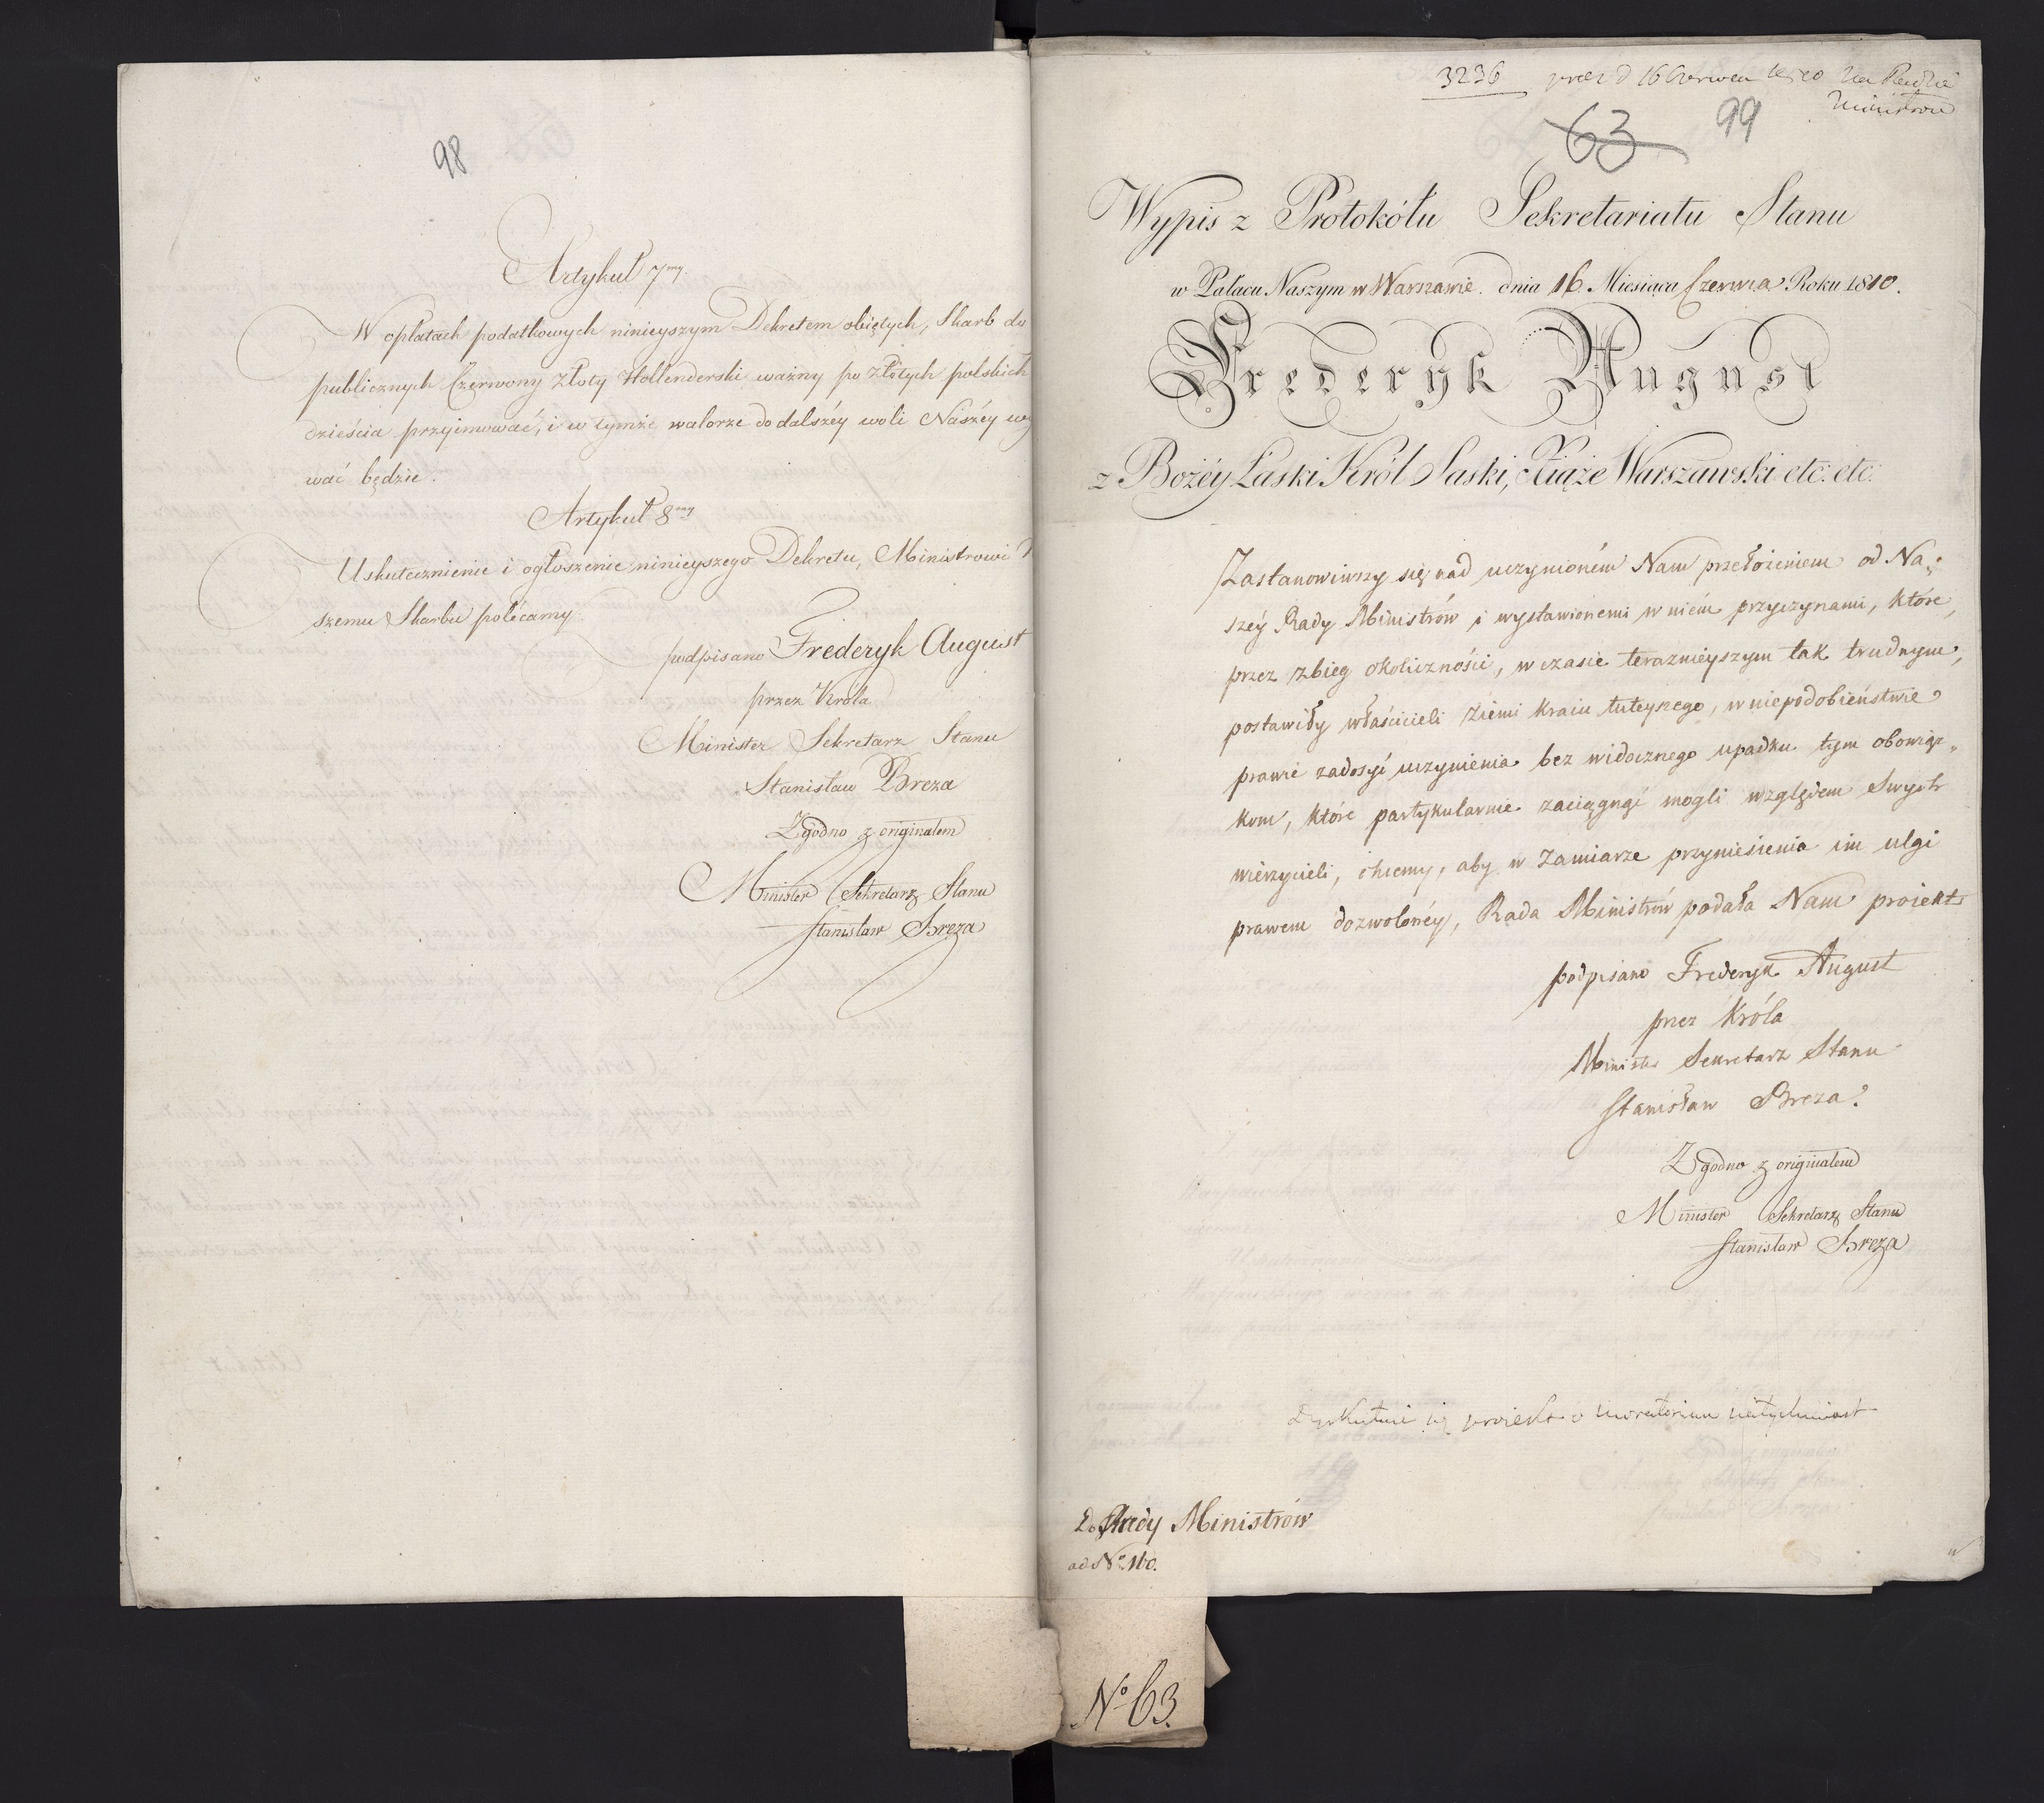 98
Artykuł 7my.
W opłatach podatkowych ninieyszym Dekretem obiętych, Skarb do
publicznych Czerwony Złoty Hollenderski ważny po Złotych polskich
dzieścia przyimować, i w tymże walorze do dalszéy woli Naszéy wy
wać będzie.
Artykuł 8my
Uskutecznienie i ogłoszenie ninieyszego Dekretu, Ministrowi
szemu Skarbu polécamy.
podpisano Frederyk August
przez Króla
Minister Sekretarz Stanu
Stanisław Breza
Zgodno z originalem
Minister Sekretarz Stanu
Stanisław Breza
3236 prez d 16 Czerwca 1810 na Radzie
Ministrów
63 99
Wypis z Protokółu Sekretariatu Stanu
w Pałacu Naszym w Warszawie. dnia 16 Miesiąca Czerwca Roku 1810.
Frederyk August
z Bożéy Łaski Król Saski, Xiąże Warszawski etc: etc:
Zastanowiwszy się nad uczynioném Nam przełożeniem od Na„
széy Rady Ministrów i wystawionemi w niém przyczynami, które,
przez zbieg okoliczności, w czasie teraznieyszym tak trudnym,
postawiły właścicieli ziemi kraiu tuteyszego, w niepodobieństwie
prawie zadosyć uczynienia bez widocznego upadku tym obowiąz„
kom, które partykularnie zaciągnąć mogli względem Swych
wierzycieli, chcemy, aby w zamiarze przyniesienia im ulgi
prawem dozwolonéy, Rada Ministrów podała Nam proiekt
podpisano Frederyk August
przez Króla
Minister Sekretarz Stanu
Stanisław Breza.
Zgodno z originalem
Minister Sekretarz Stanu
Stanisław Breza
Dyskutuie się proiekt o moratorium natychmiast
Do Rady Ministrów
ad No. 160.
No 63.